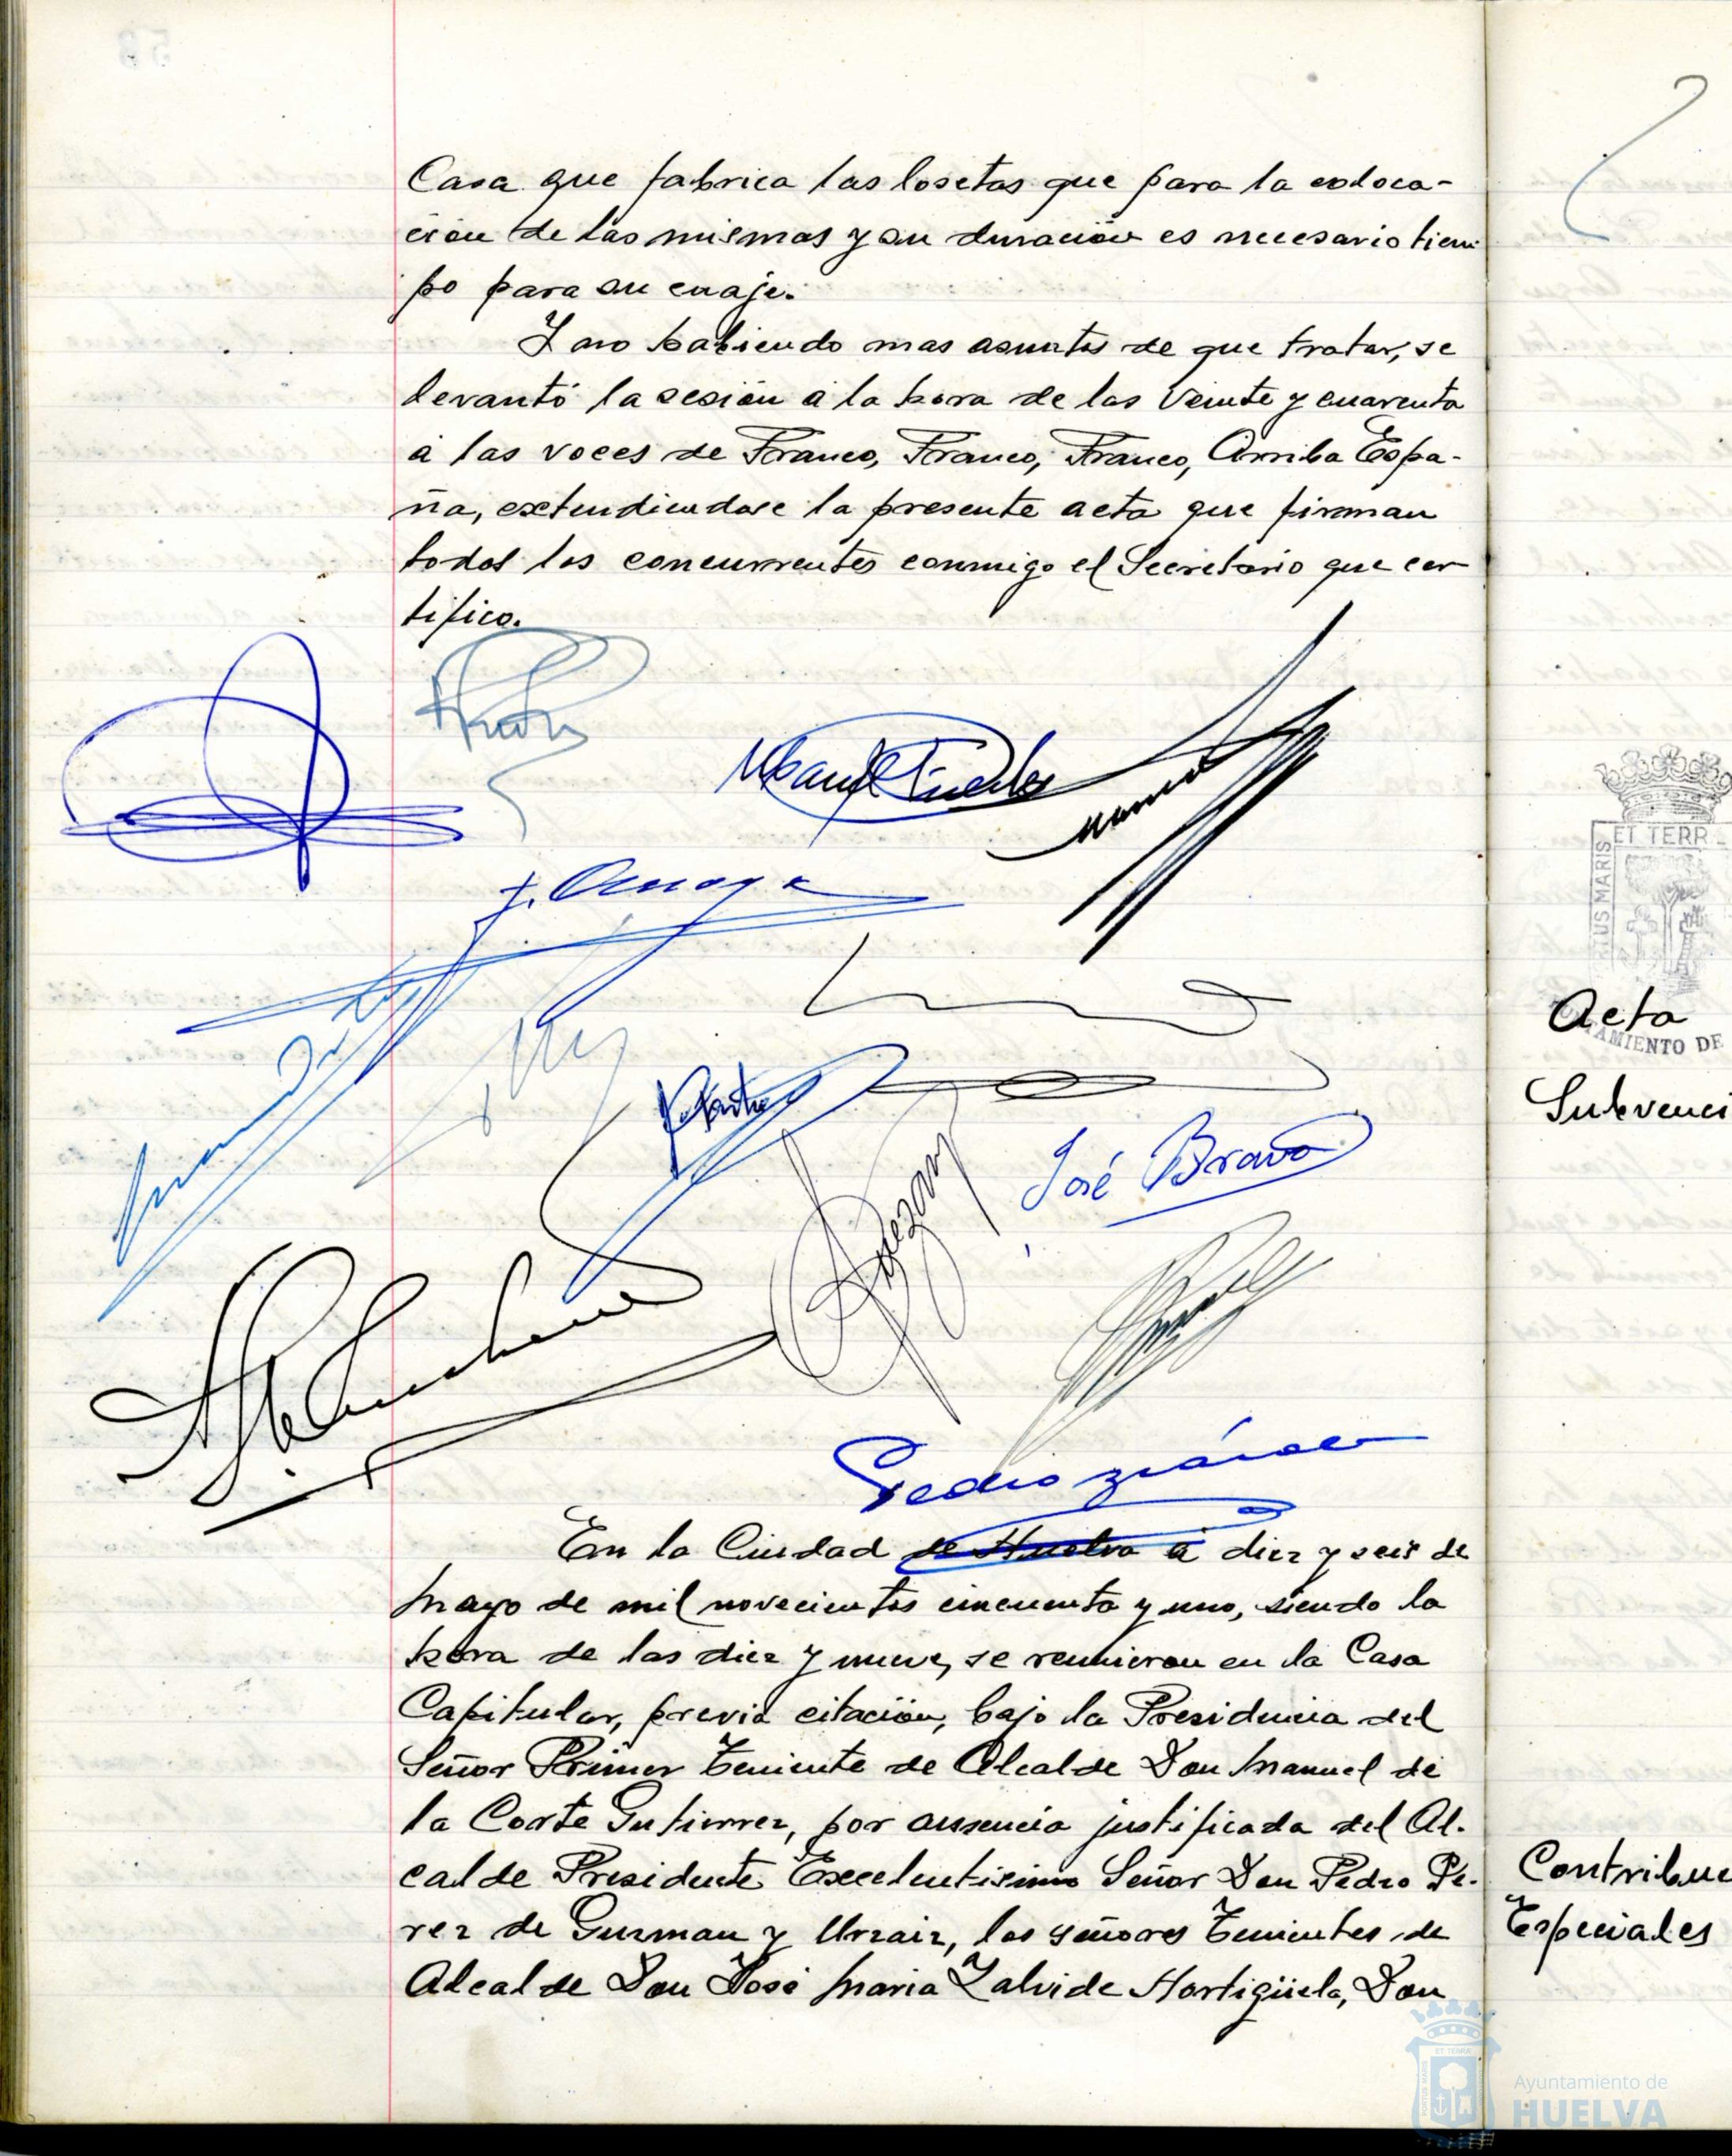 Casa que fabrica las losetas que para la coloca-
ción de las mismas y su duración es necesario tiem
po para su cuaje.
Y no habiendo mas asuntos de que tratar, se
levantó la sesión a la hora de las veinte y cuarenta
a las voces de Franco, Franco, Franco, Arriba Espa-
ña, extendiendose la presente acta que firman
todos los concurrentes conmigo el Secretario que cer
tifico.
José Bravo
En la Ciudad de Huelva a diez y seis de
Mayo de mil novecientos cincuenta y uno, siendo la
hora de las diez y nueve, se reunieron en la Casa
Capitular, previa citación, bajo la Presidencia del
Señor Primer Teniente de Alcalde Don Manuel de
la Corte Gutierrez, por aussencia justificada del Al-
calde Presidente Excelentisimo Señor Don Pedro Pe-
rez de Guzman y Urzaiz, los señores Tenientes de
Alcalde Don José Maria Zalvide Hortigüela, Don
ET TERR
US MARIS
Acta
AMIENTO DE
Subvenci
Contribuc
Especiales
Ayuntamiento de
HUELVA